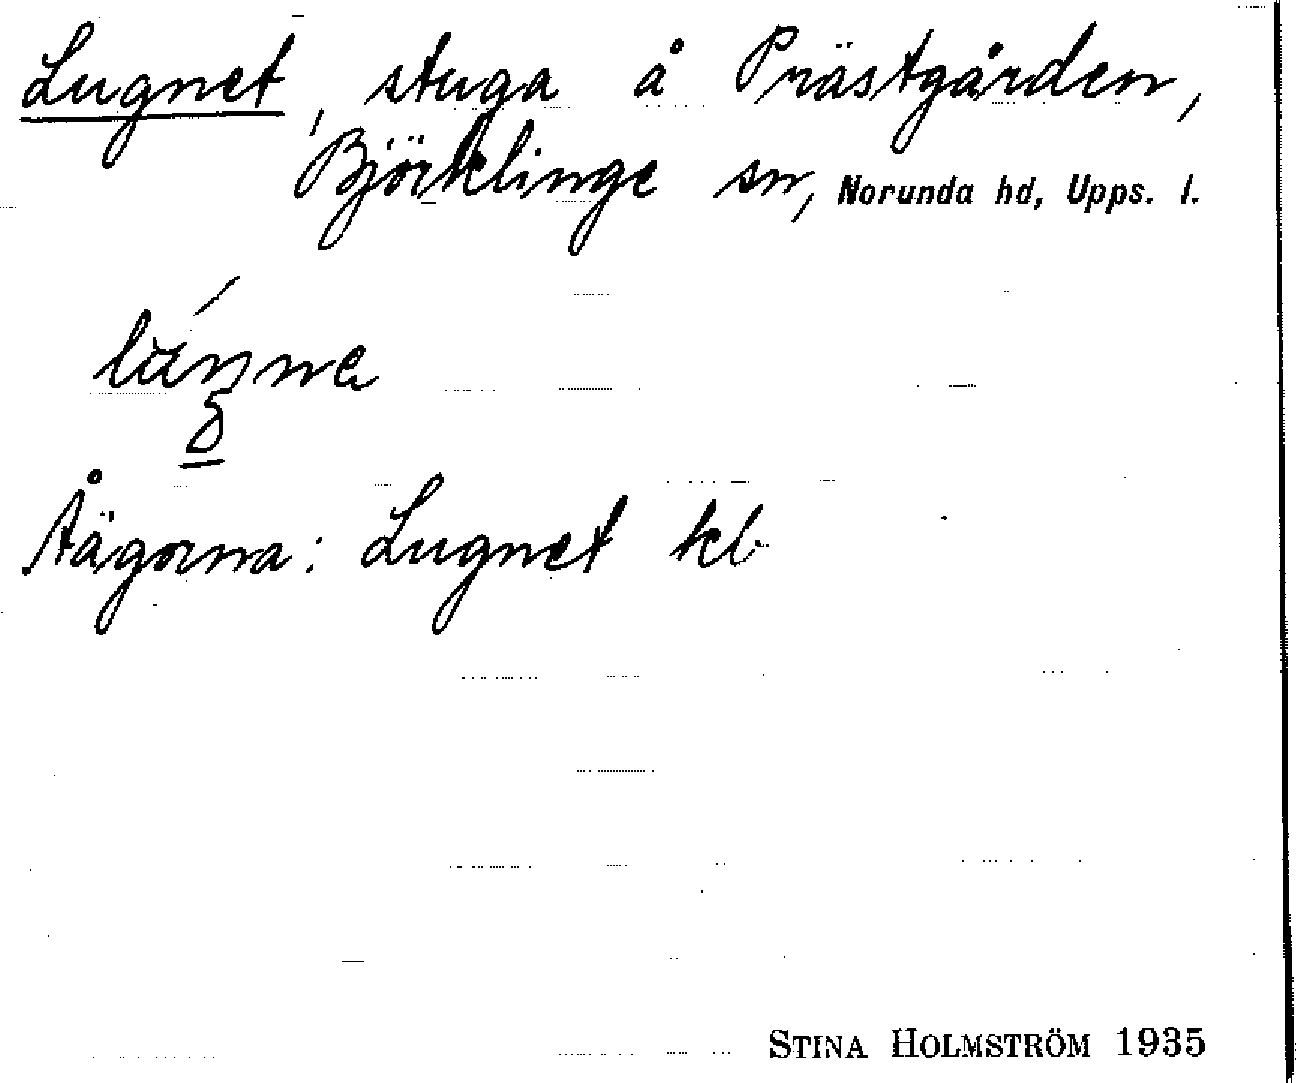 Lugnet, stuga å Prästgården,
Björklinge sn, Norunda hd, Upps. l.
Åägorna: Lugnet kb
STINA HOLMSTRÖM 1935